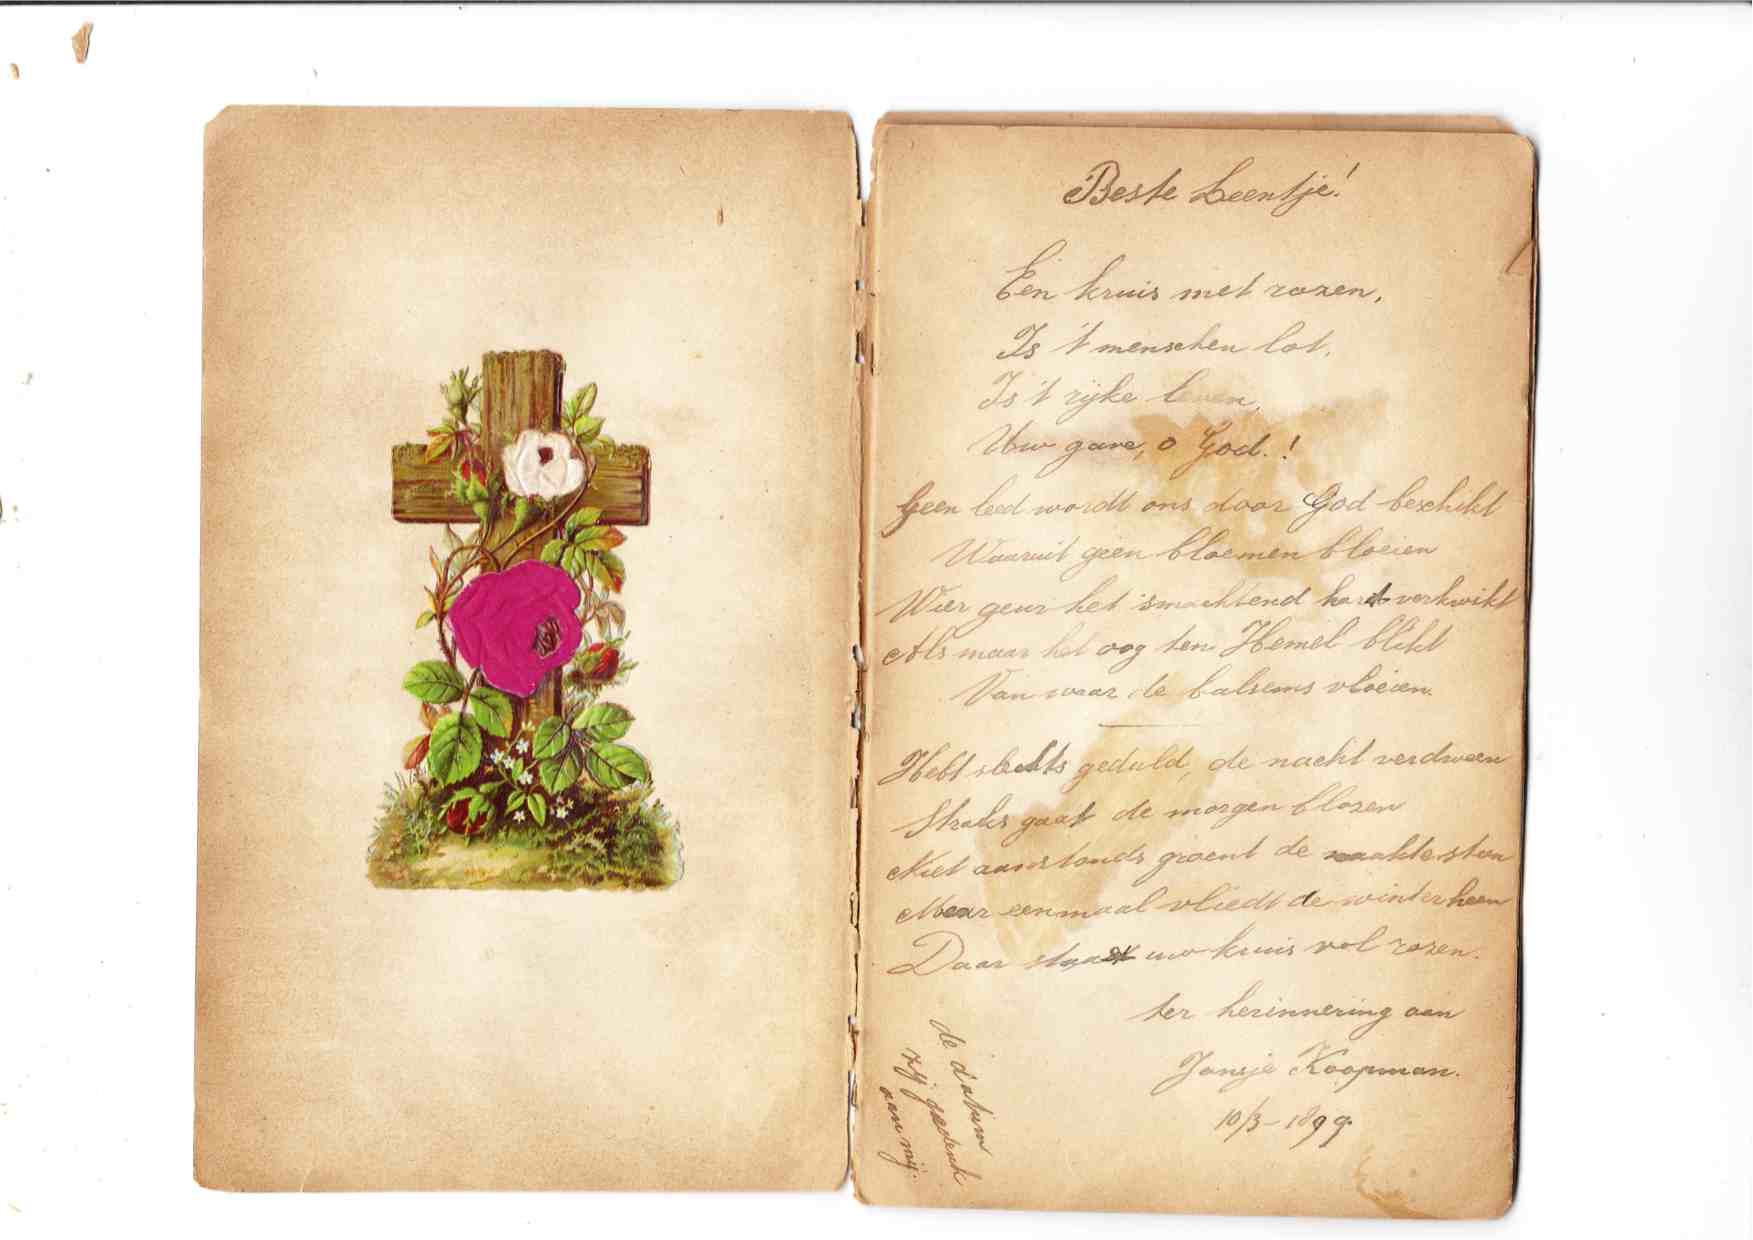 Beste Leentje!
Een kruis met rozen,
Is 't menschen lot,
Is 't rijke leven,
Uw gave, o God.!
Geen leed wordt ons door God beschikt
Waaruit geen bloemen bloeien
Wier geur het smachtend hart verkwikt
Als maar het oog ten Hemel blikt
Van waar de balsems vloeien.
Hebt slechts geduld, de nacht verdween
Straks gaat de morgen blozen
Niet aanstonds groent de naakte steen
Maar eenmaal vliedt de winter heen
Daar staat uw kruis vol rozen.
ter herinnering aan
Jansje Koopman.
10/3-1899.
de datum
zij gedenk
aan mij.